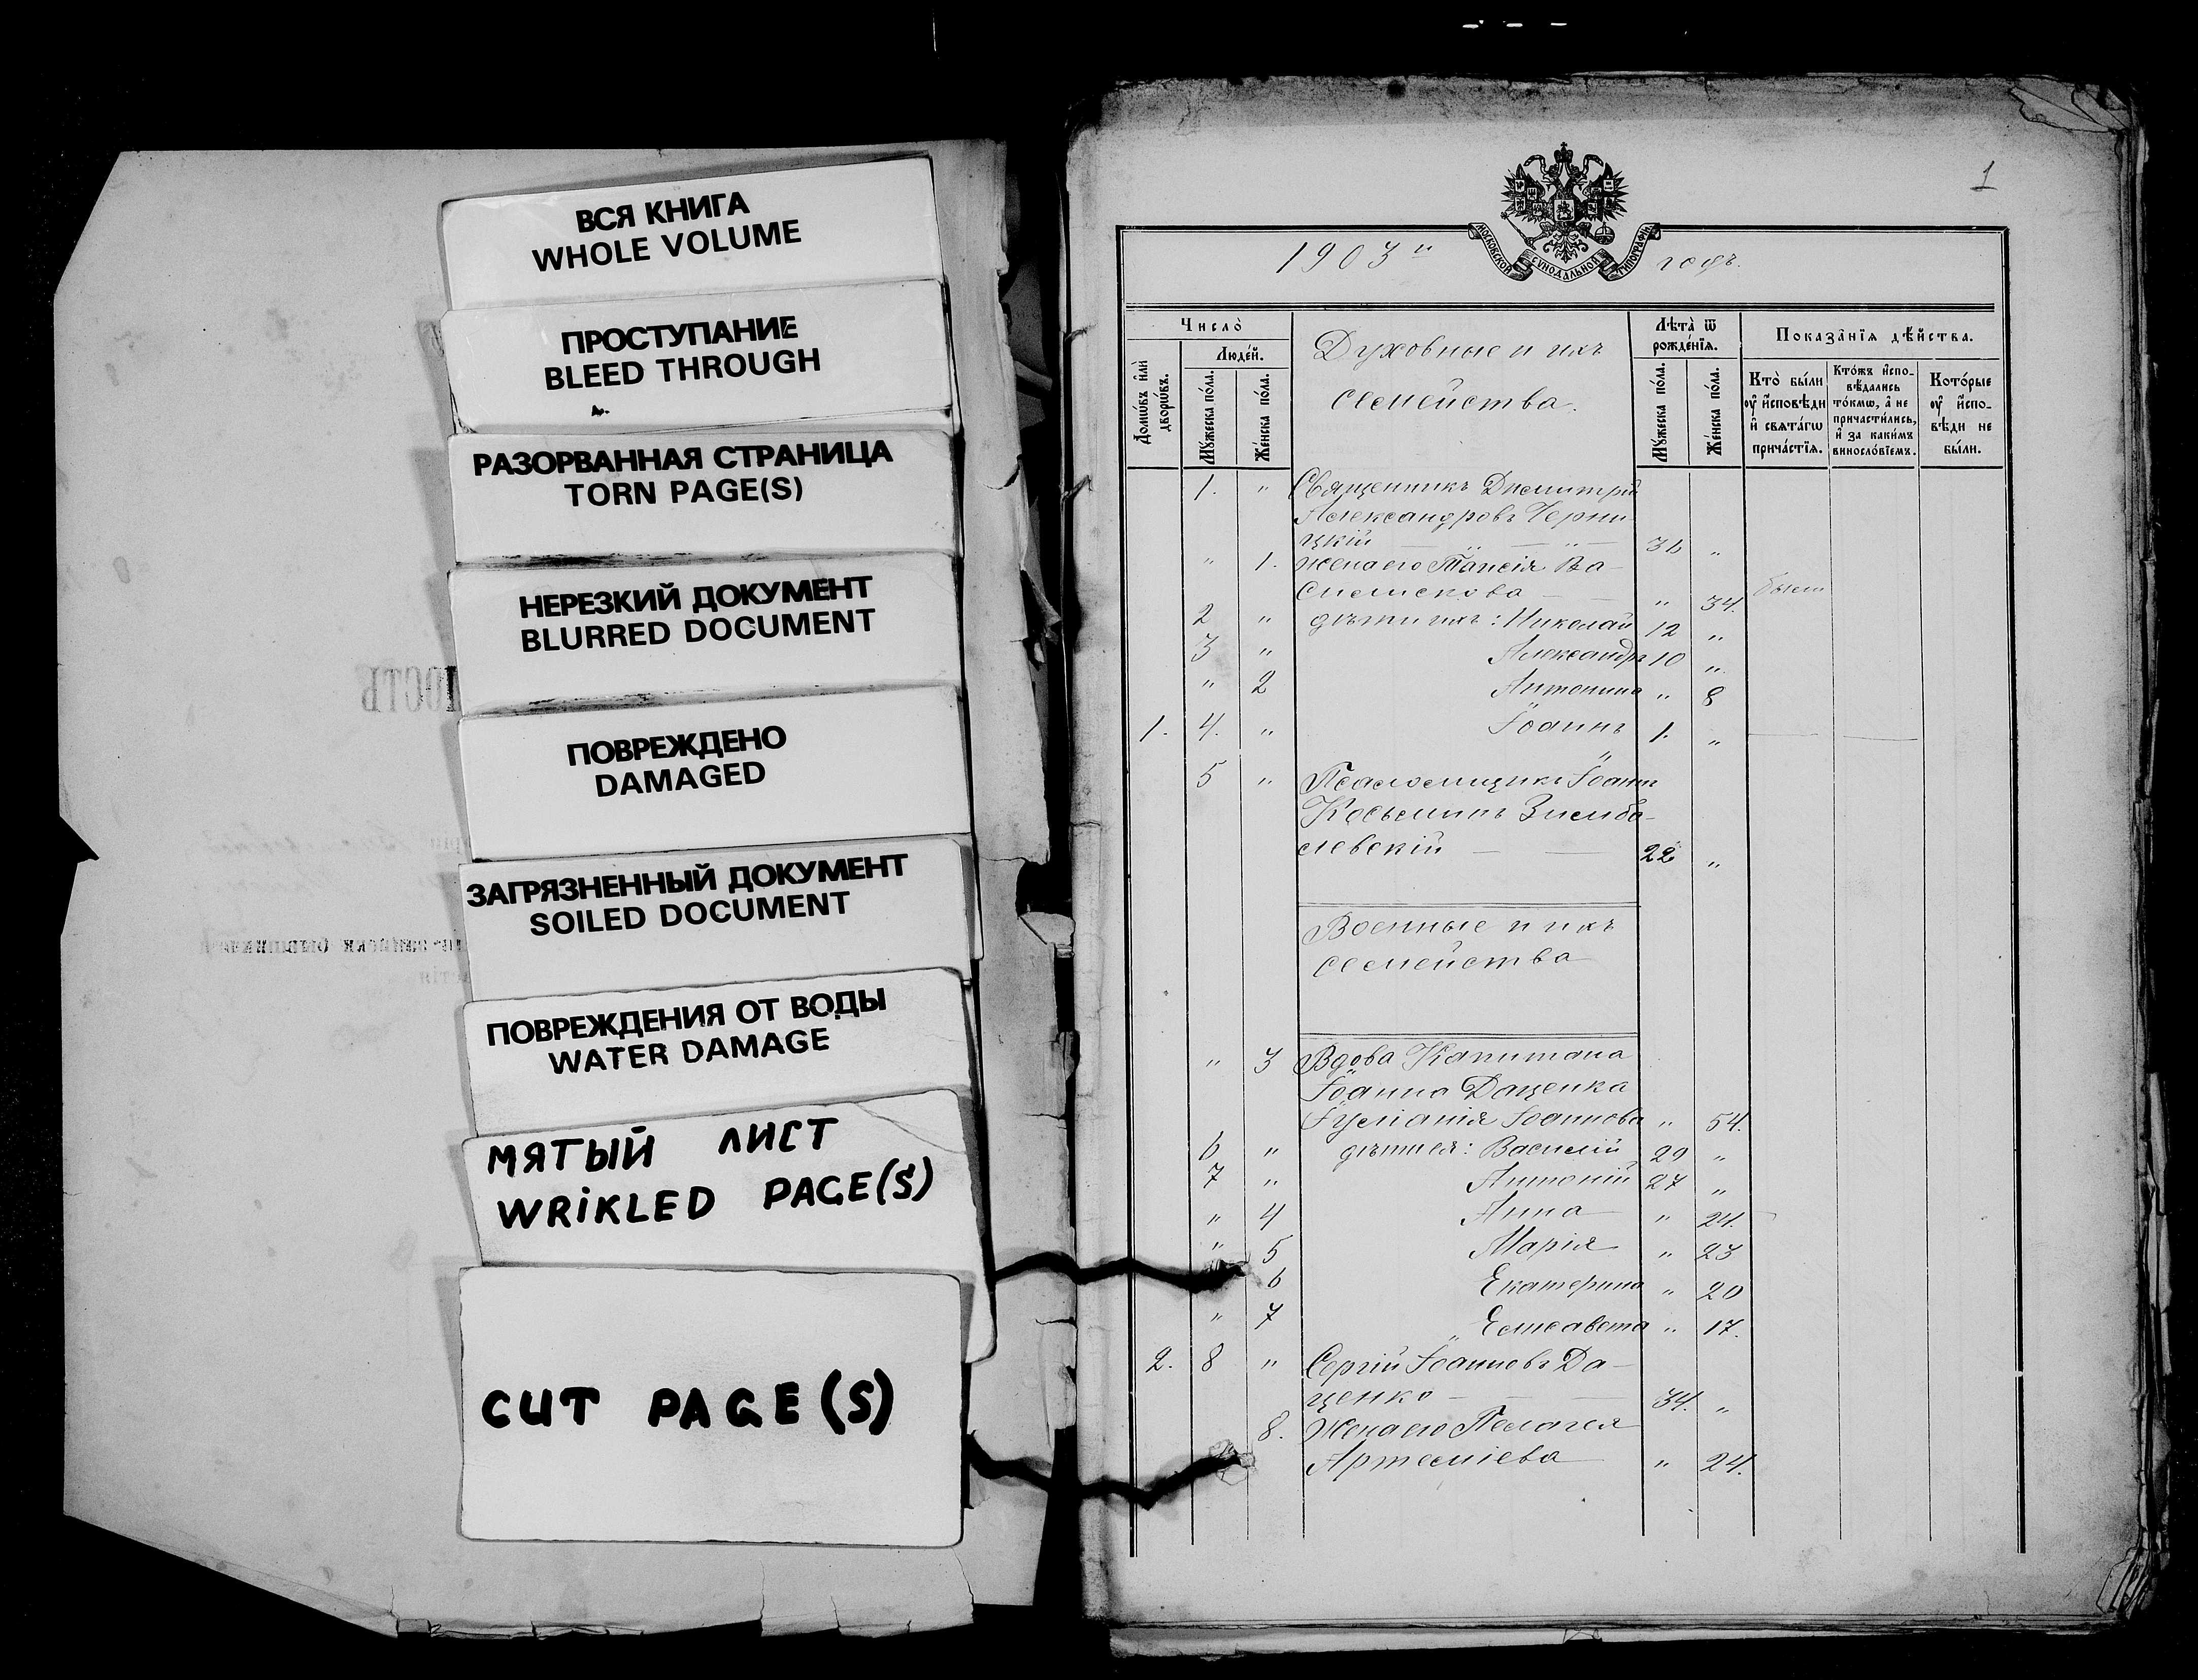 ВСЯ КНИГА
WHOLE VOLUME
ПРОСТУПАНИЕ
BLEED THROUGH
РАЗОРВАННАЯ СТРАНИЦА
TORN PAGE(S)
НЕРЕЗКИЙ ДОКУМЕНТ
BLURRED DOCUMENT
ПОВРЕЖДЕНО
DAMAGED
ЗАГРЯЗНЕННЫЙ ДОКУМЕНТ
SOILED DOCUMENT
ПОВРЕЖДЕНИЯ ОТ ВОДЫ
WATER DAMAGE
МЯТЫЙ ЛИСТ
WRIKLED PAGE(S)
CUT PAGE(S)
1
МОСКОВСКОЙ СУНОДАЛЬНОЙ ТИПОГРАФІИ
1903й годъ.
Число̀
Люде́й.
Домѡ́въ и҆лѝ дворѡ́въ.
Мꙋ́жеска по́ла.
Же́нска по́ла.
Духовные и ихъ
семейства.
Лѣта̀ ѿ рожде́нїѧ.
Мꙋ́жеска по́ла.
Же́нска по́ла.
Показа̑нїѧ дѣ́йства.
Кто̀ бы́ли ᲂу҆ и҆сповѣ́ди и҆ свѧта́гѡ прича́стїѧ.
Кто́жъ и҆спо-вѣ́дались то́кмѡ, а҆ не причасти́лись, и҆ за каки́мъ виносло́вїемъ.
Кото́рые ᲂу҆ и҆спо-вѣ́ди не бы́ли.
1. " Священникъ Димитрій
Александровъ Черни-
цкій — " — " — 36 "
" 1. жена его Таисія Ва-
силискова — — " 34. были
2 " дѣти ихъ: Николай 12 "
3 " Александръ 10 "
" 2 Антонина " 8
1. 4. " Іоаннъ 1. "
5 " Псаломщикъ Іоаннъ
Косьминъ Зимба-
левскій — — 22 "
Военные и ихъ
семейства
" 3 Вдова Капитана
Іоанна Даценка
Іуліанія Іоаннова " 54.
6 " дѣти ея: Василій 29 "
7 " Антоній 27 "
" 4 Анна " 24.
" 5 Марія " 23
" 6 Екатерина " 20
" 7 Елисавета " 17.
2. 8 " Сергій Іоанновъ Да-
ценко — — — 34. "
8. Жена его Пелагея
Артеміева " 24.